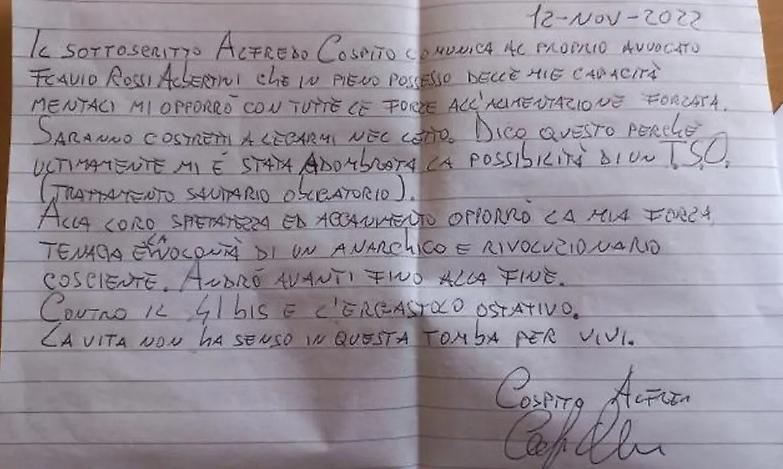 12-NOV-2022
IL SOTTOSCRITTO ALFREDO COSPITO COMUNICA AL PROPRIO AVVOCATO
FLAVIO ROSSI ALBERTINI CHE IN PIENO POSSESSO DELLE MIE CAPACITÀ
MENTALI MI OPPORRÒ CON TUTTE LE FORZE ALL'ALIMENTAZIONE FORZATA.
SARANNO COSTRETTI A LEGARMI NEL LETTO. DICO QUESTO PERCHÉ
ULTIMAMENTE MI È STATA ADOMBRATA LA POSSIBILITÀ DI UN T.S.O.
(TRATTAMENTO SANITARIO OBLIGATORIO).
ALLA LORO SPIETATEZZA ED ACCANIMENTO OPPORRÒ LA MIA FORZA,
TENACIA E LA VOLONTÀ DI UN ANARCHICO E RIVOLUZIONARIO
COSCIENTE. ANDRÒ AVANTI FINO ALLA FINE.
CONTRO IL 41 bis E L'ERGASTOLO OSTATIVO.
LA VITA NON HA SENSO IN QUESTA TOMBA PER VIVI.
COSPITO ALFREDO